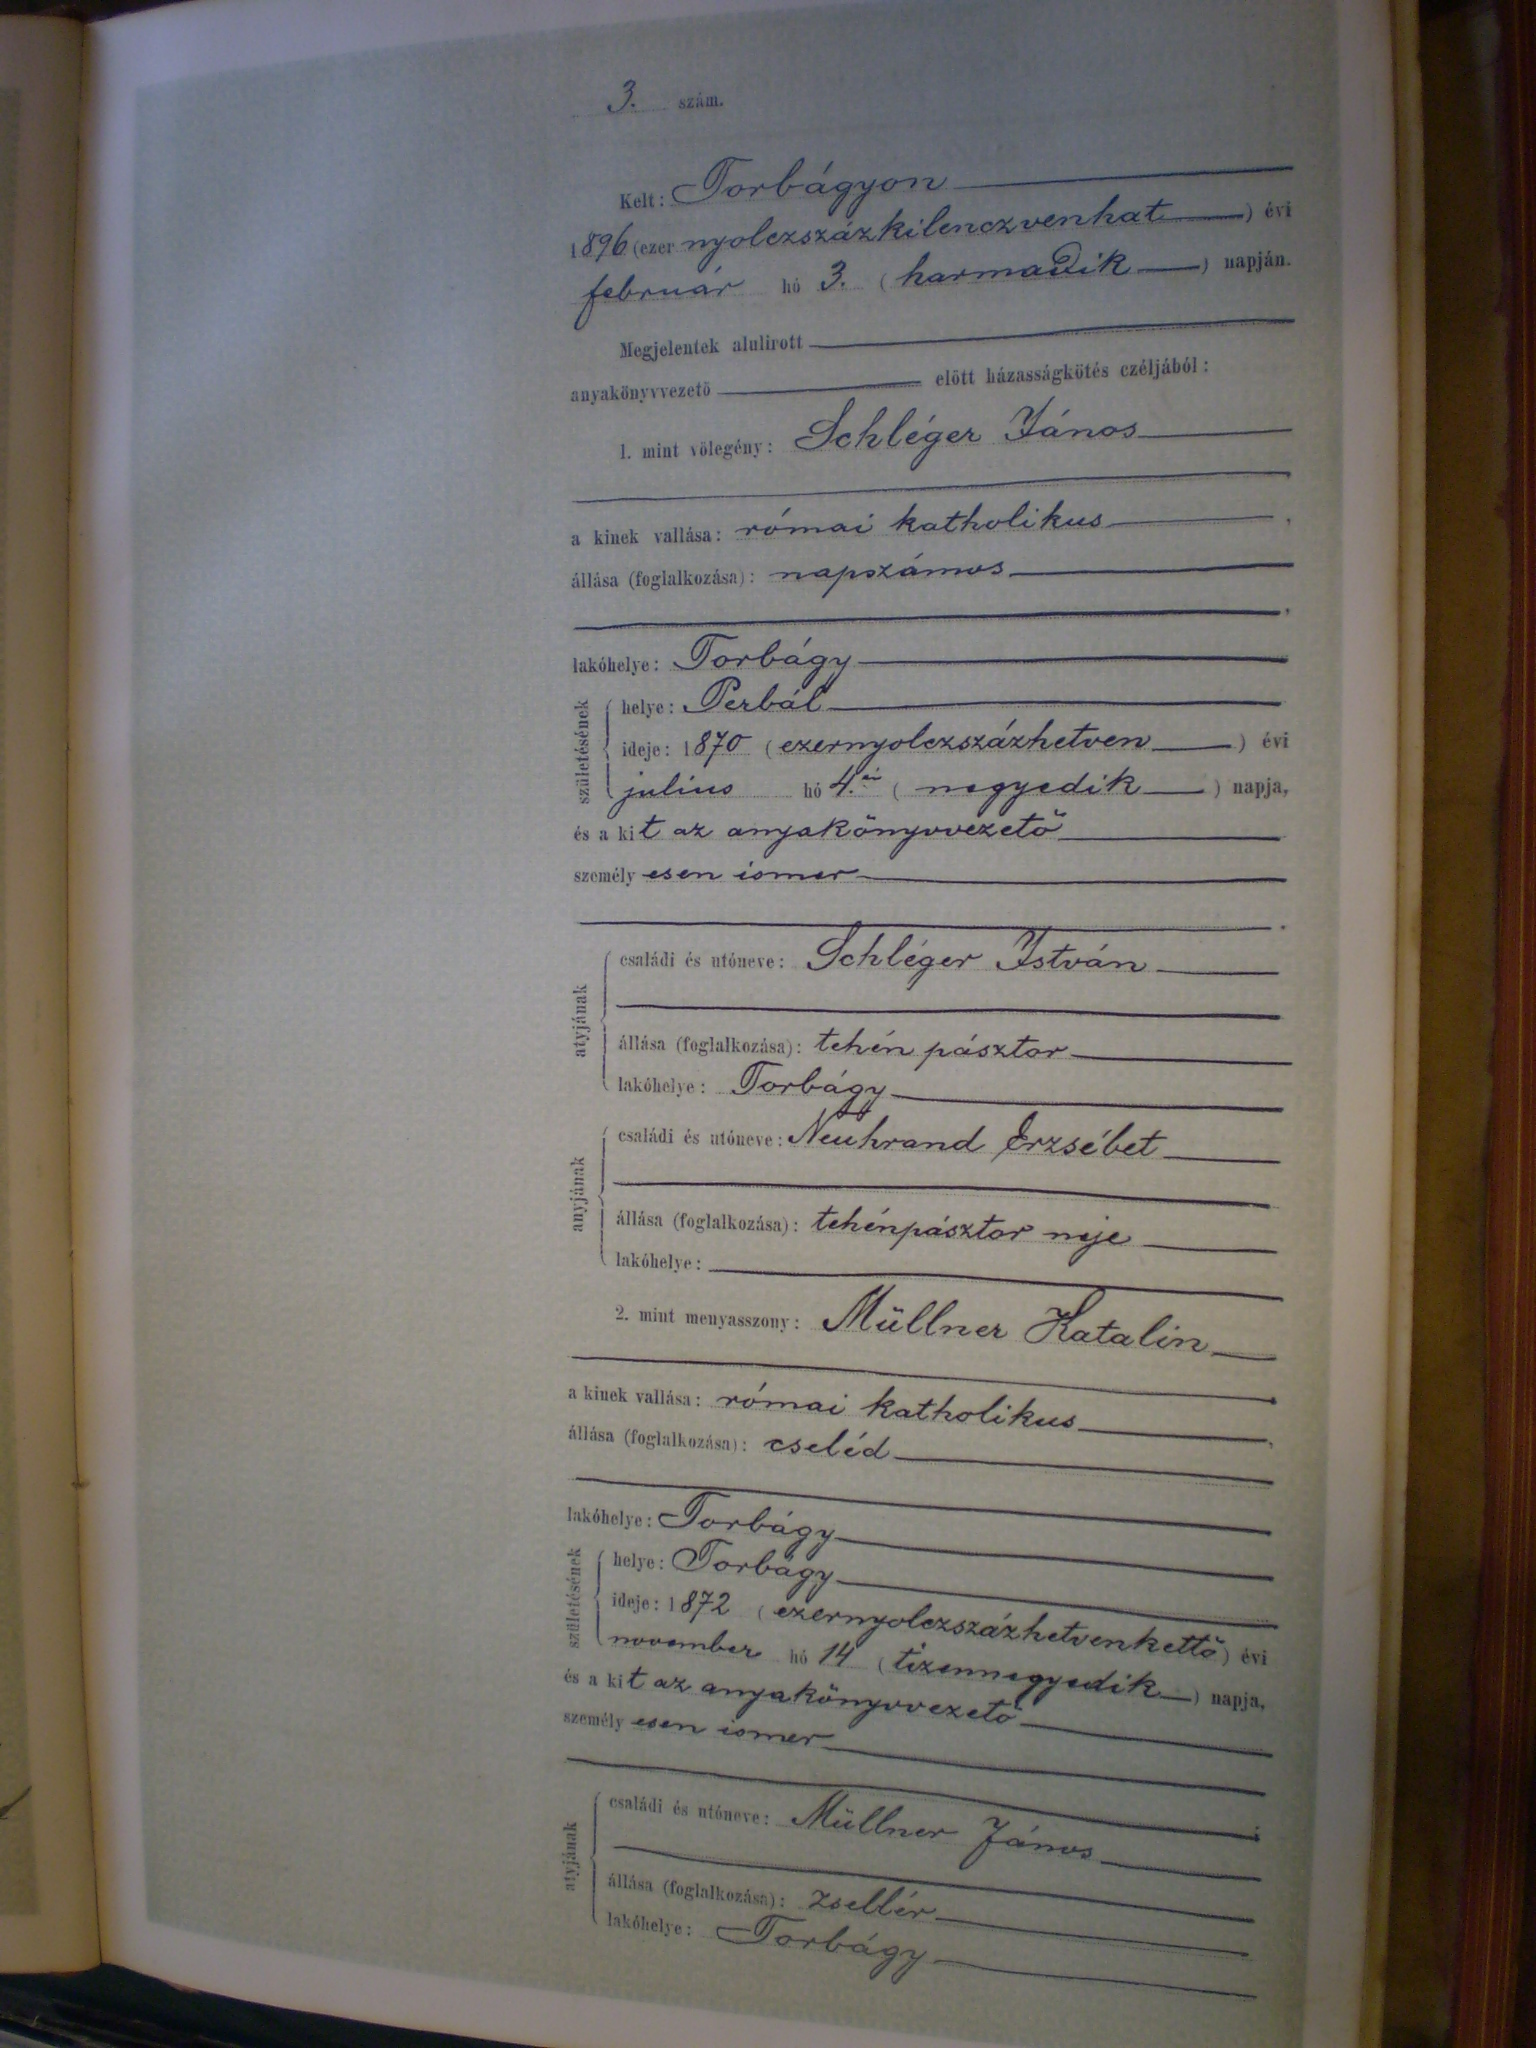 3. szám.
Kelt: Torbágyon
1896 (ezer nyolczszázkilenczvenhat) évi
február hó 3. (harmadik) napján.
Megjelentek alulirott
anyakönyvvezető előtt házasságkötés czéljából:
1. mint vőlegény: Schléger János
a kinek vallása: római katholikus,
állása (foglalkozása): napszámos,
lakóhelye: Torbágy
születésének
helye: Perbál
ideje: 1870 (ezernyolczszázhetven) évi
július hó 4.-ei (negyedik) napja,
és a kit az anyakönyvvezető
személyesen ismer
.
atyjának
családi és utóneve: Schléger István
állása (foglalkozása): tehén pásztor
lakóhelye: Torbágy
anyjának
családi és utóneve: Neuhrand Erzsébet
állása (foglalkozása): tehénpásztor neje
lakóhelye:
2. mint menyasszony: Müllner Katalin
a kinek vallása: római katholikus,
állása (foglalkozása): cseléd
lakóhelye: Torbágy
születésének
helye: Torbágy
ideje: 1872 (ezernyolczszázhetvenkettő) évi
november hó 14 (tizennegyedik) napja,
és a kit az anyakönyvvezető
személyesen ismer
;
atyjának
családi és utóneve: Müllner János
állása (foglalkozása): zsellér
lakóhelye: Torbágy